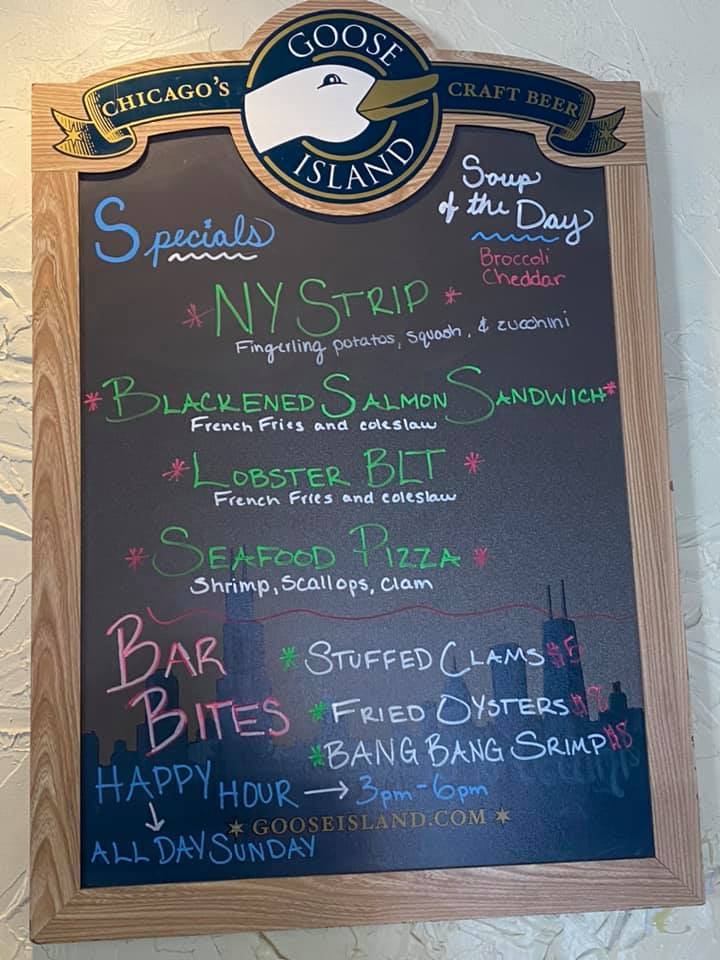 GOOSE
CHICAGO'S
CRAFT BEER
ISLAND
Specials
Soup
of the Day
Broccoli
Cheddar
*NY STRIP*
Fingerling potatos, squash, & zucchini
*BLACKENED SALMON SANDWICH*
French Fries and coleslaw
*LOBSTER BLT*
French Fries and coleslaw
*SEAFOOD PIZZA*
Shrimp, Scallops, clam
BAR
BITES
*STUFFED CLAMS $5
*FRIED OYSTERS
*BANG BANG SRIMP $8
HAPPY HOUR → 3pm-6pm
↓
* GOOSEISLAND.COM *
ALL DAY SUNDAY